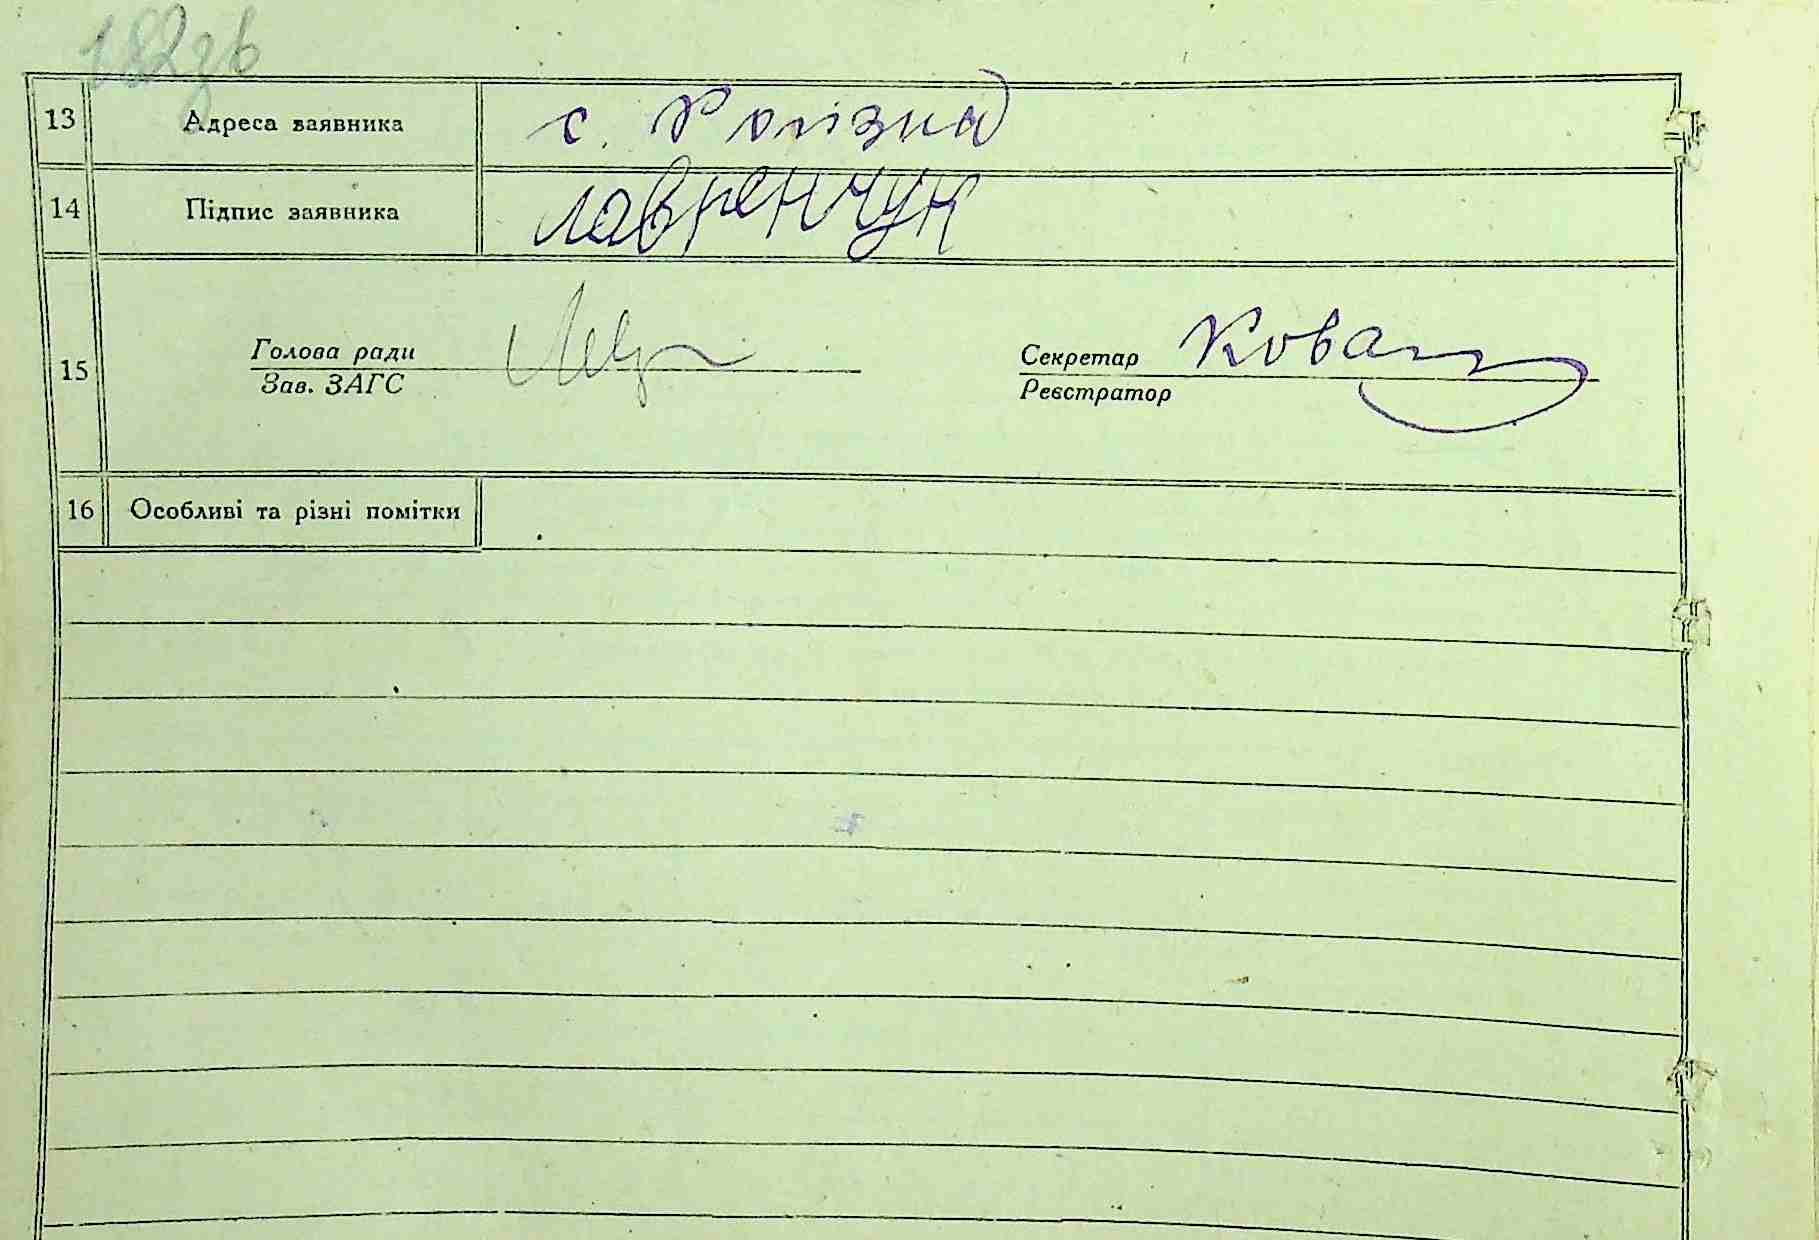 182зв
13 Адреса заявника с. Розізна
14 Підпис заявника Лавренчук
Голова ради Секретар Ковал
15
Зав. ЗАГС Реєстратор
16 Особливі та різні помітки